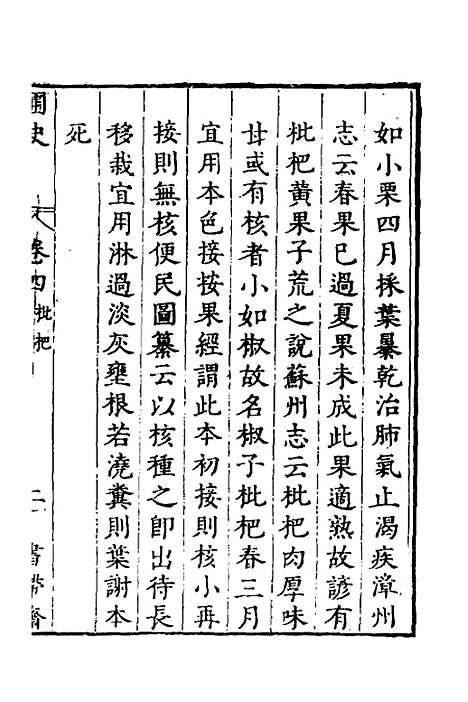 如小栗四月採葉暴乾治肺氣止渴疾漳州
志云春果已過夏果未成此果適熟故諺有
枇杷黃果子荒之說蘇州志云枇杷肉厚味
甘或有核者小如椒故名椒子枇杷春三月
宜用本色接按果經謂此本初接則核小再
接則無核便民圖纂云以核種之即出待長
移栽宜用淋過淡灰壅根若澆糞則葉謝本
死
史 卷四 枇杷 二 書帶齋